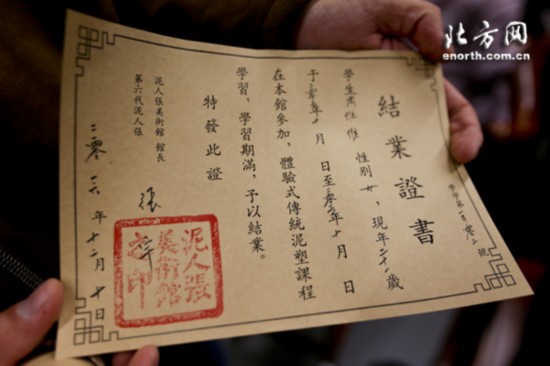 北方网
enorth.com.cn
結業證書
學字第一百零二號
學生周 性別女，現年二十一歲
于 年十 月 日至 年十月 日
在本館參加，體驗式傳統泥塑課程
學習，學習期滿，予以結業。
特發此證
泥人張美術館 館長
第六代泥人張 張
二零一六年十二月十日
泥人張
美術館
之印